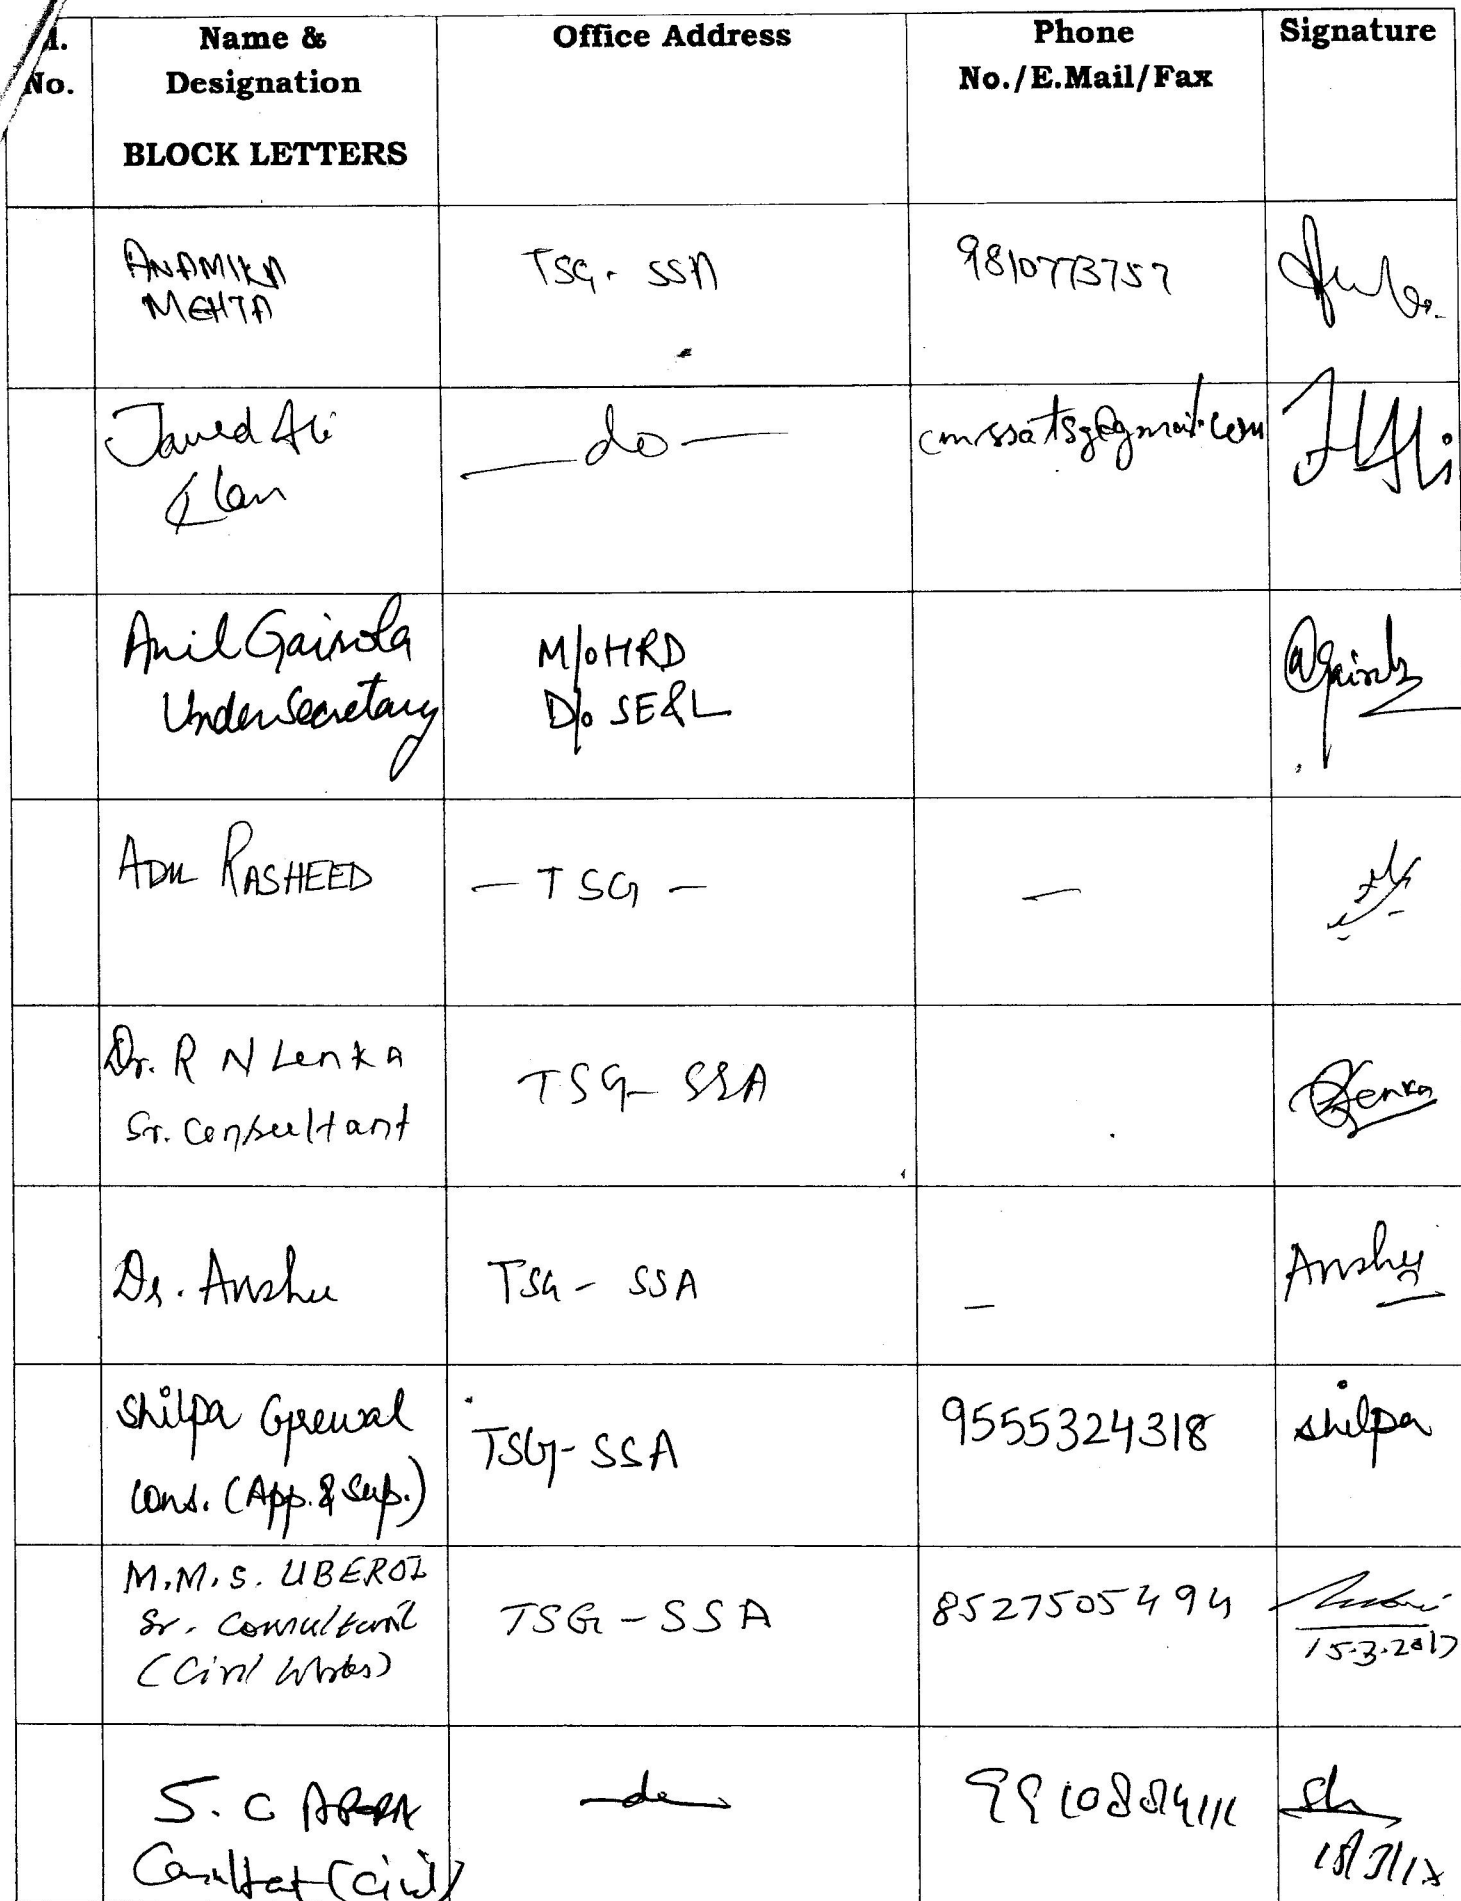 l. No.
Name & Designation
BLOCK LETTERS
Office Address
Phone No./E.Mail/Fax
Signature
ANAMIKA MEHTA
TSG - SSA
9810773757
Javed Ali Khan
— do —
cmssatsg@gmail.com
Anil Gairola
Under Secretary
M/o HRD
D/o SE&L
Agairola
ADIL RASHEED
— TSG —
—
Dr. R N Lenka
Sr. Consultant
TSG - SSA
Lenka
Dr. Anshu
TSG - SSA
—
Anshu
Shilpa Grewal
Cons. (App. & Sup.)
TSG - SSA
9555324318
Shilpa
M.M.S. UBEROI
Sr. Consultant
(Civil Works)
TSG - SSA
8527505494
15.3.2017
S. C ARORA
Consultant (Civil)
— do —
15/3/17